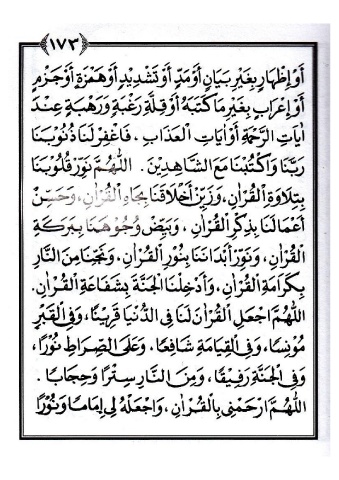 ١٧٣
أَوْ إِظْهَارٍ بِغَيْرِ بَيَانٍ أَوْ مَدٍّ أَوْ تَشْدِيدٍ أَوْ هَمْزَةٍ أَوْ جَزْمٍ
أَوْ إِعْرَابٍ بِغَيْرِ مَا كَتَبَهُ أَوْ قِلَّةِ رَغْبَةٍ وَرَهْبَةٍ عِنْدَ
أٰيَاتِ الرَّحْمَةِ أَوْ أٰيَاتِ الْعَذَابِ ، فَاغْفِرْ لَنَا ذُنُوبَنَا
رَبَّنَا وَاكْتُبْنَا مَعَ الشَّاهِدِينَ . اَللّٰهُمَّ نَوِّرْ قُلُوبَنَا
بِتِلَاوَةِ الْقُرْاٰنِ ، وَزَيِّنْ أَخْلَاقَنَا بِجَاهِ الْقُرْاٰنِ ، وَحَسِّنْ
أَعْمَالَنَا بِذِكْرِ الْقُرْاٰنِ ، وَبَيِّضْ وُجُوهَنَا بِبَرَكَةِ
الْقُرْاٰنِ ، وَنَوِّرْ أَبْدَانَنَا بِنُورِ الْقُرْاٰنِ ، وَنَجِّنَا مِنَ النَّارِ
بِكَرَامَةِ الْقُرْاٰنِ ، وَأَدْخِلْنَا الْجَنَّةَ بِشَفَاعَةِ الْقُرْاٰنِ .
اَللّٰهُمَّ اجْعَلِ الْقُرْاٰنَ لَنَا فِي الدُّنْيَا قَرِينًا ، وَفِي الْقَبْرِ
مُونِسًا ، وَفِي الْقِيَامَةِ شَافِعًا . وَعَلَى الصِّرَاطِ نُورًا ،
وَفِي الْجَنَّةِ رَفِيقًا ، وَمِنَ النَّارِ سِتْرًا وَحِجَابًا .
اَللّٰهُمَّ ارْحَمْنِي بِالْقُرْاٰنِ ، وَاجْعَلْهُ لِي إِمَامًا وَنُورًا